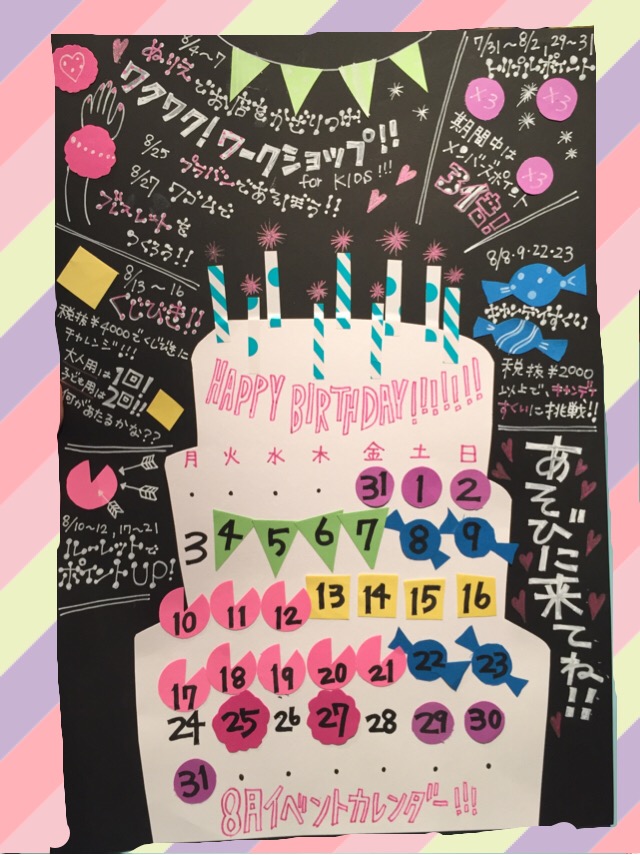 8/4〜7
ぬりえでお店をかざりつけ
ワクワク!ワークショップ!!
for KIDS!!!
8/25 プラバンであそぼう!!
8/27 ワゴムで
ブレスレットを
つくろう!!
7/31〜8/2,29〜31
トリプルポイント
×3
×3
×3
期間中は
メンバーズポイント
3倍!
8/13〜16
くじびき!!
税抜¥4000でくじびきに
チャレンジ!!!
大人用は1回!
子ども用は2回!!
何があたるかな??
8/8・9・22・23
キャンディすくい
税抜¥2000
以上で、キャンディ
すくいに挑戦!!
8/10〜12,17〜21
ルーレットで
ポイントUP!
あそびに来てね!!
HAPPY BIRTHDAY!!!!!!!
月 火 水 木 金 土 日
・ ・ ・ ・ 31 1 2
3 4 5 6 7 8 9
10 11 12 13 14 15 16
17 18 19 20 21 22 23
24 25 26 27 28 29 30
31 ・ ・ ・ ・ ・ ・
8月イベントカレンダー!!!